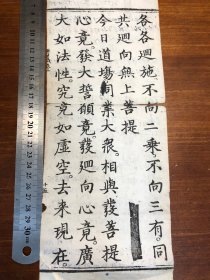 各各迴施。不向二乘不向三有。同
共迴向無上菩提
今日道場同業大衆。相與發菩提
心竟。發大誓願竟。發迴向心竟。廣
大如法性。究竟如虛空。去來現在。